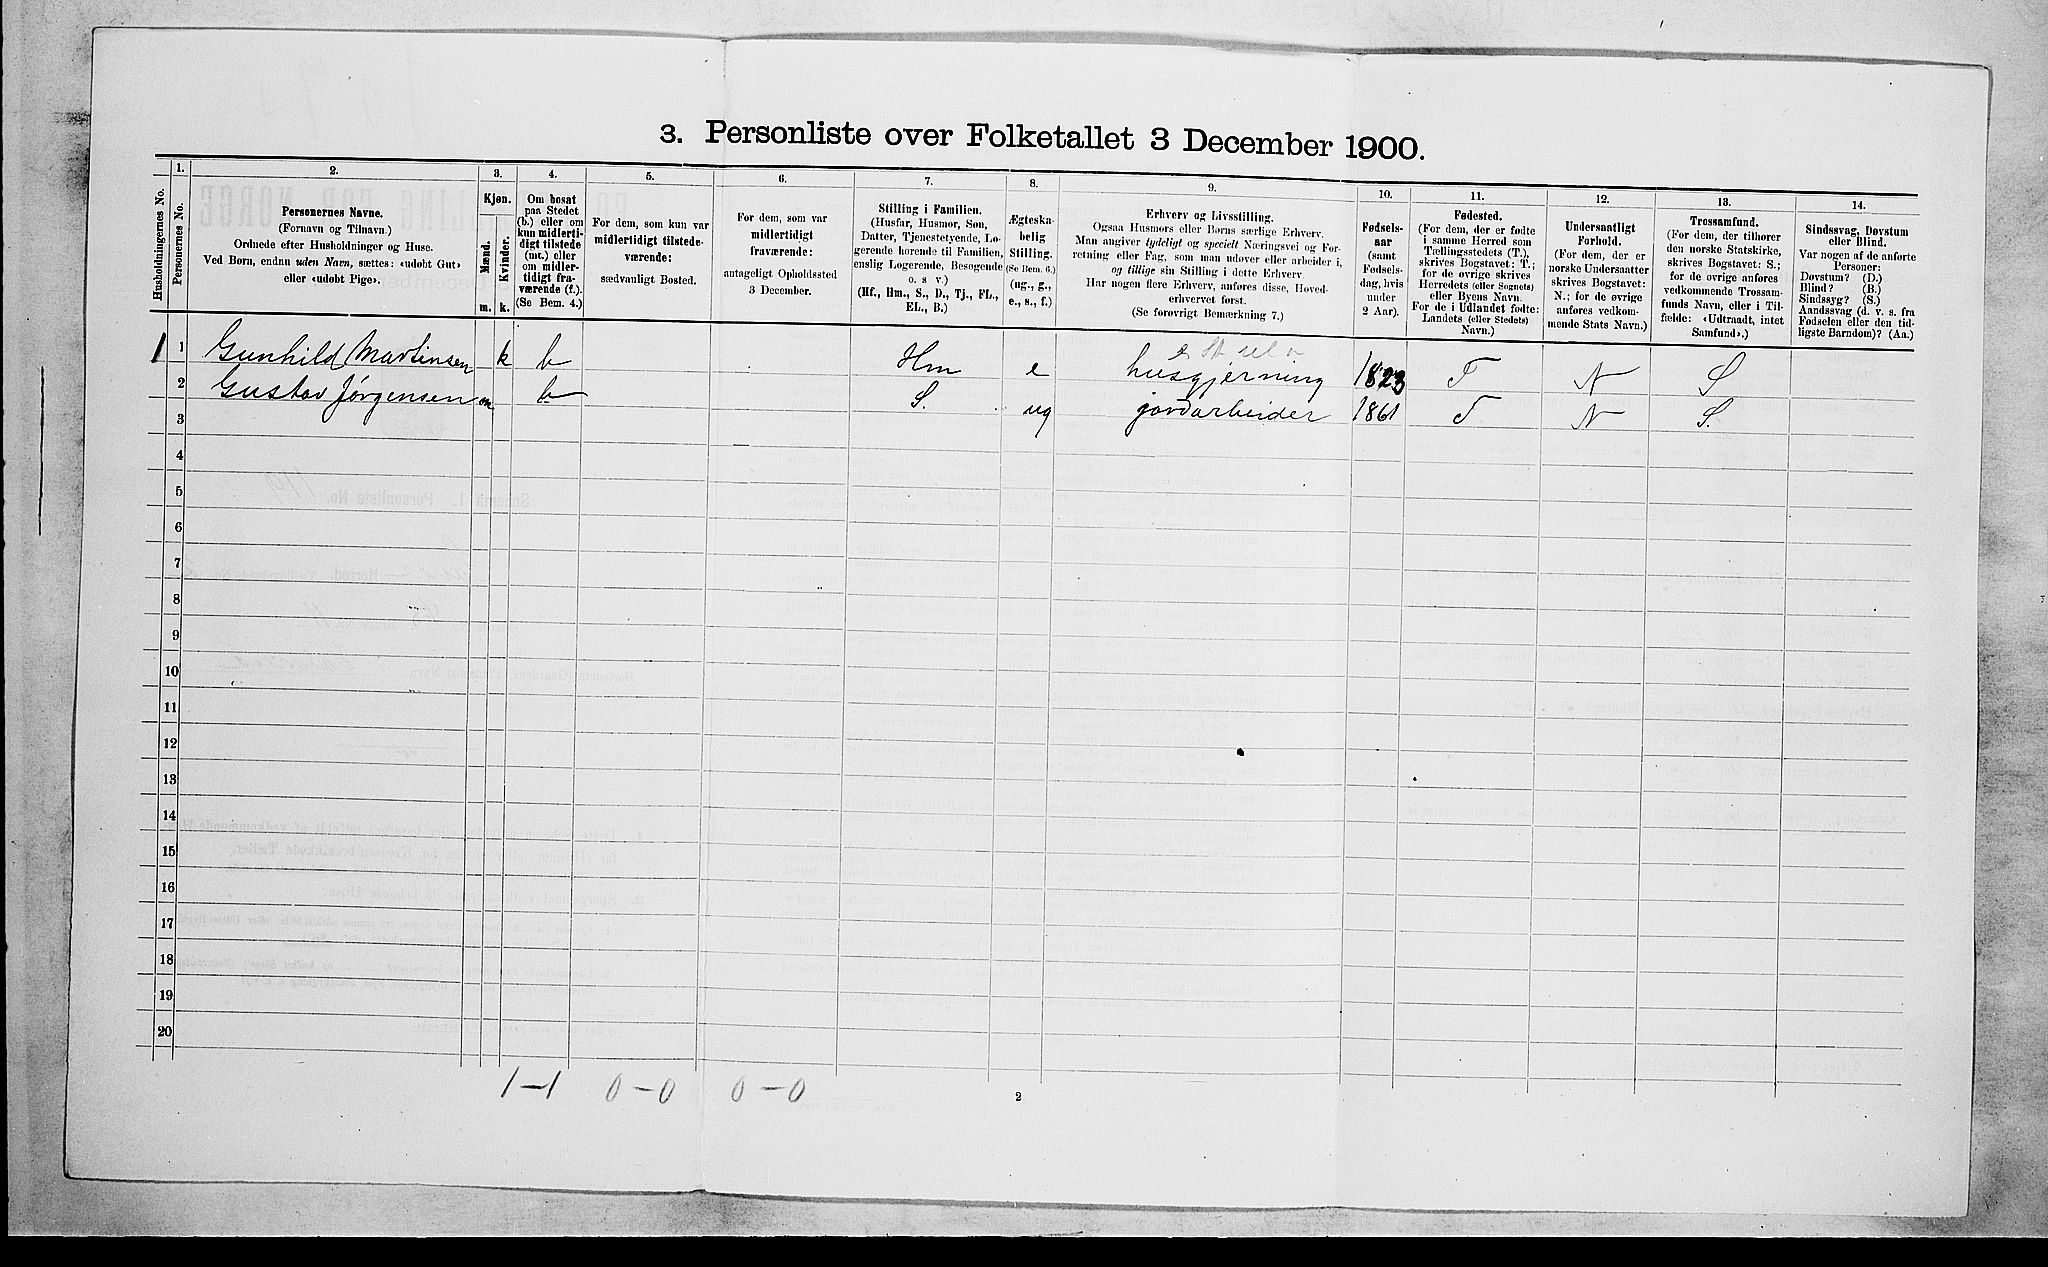 3. Personliste over Folketallet 3 December 1900.
Husholdningernes No.
1.
Personernes No.
2.
Personernes Navne.
(Fornavn og Tilnavn.)
Ordnede efter Husholdninger og Huse.
Ved Børn, endnu uden Navn, sættes: «udøbt Gut»
eller «udøbt Pige».
3.
Kjøn.
Mænd.
Kvinder.
m. k.
4.
Om bosat
paa Stedet
(b.) eller om
kun midlerti-
digt tilstede
(mt.) eller
om midler-
tidigt fra-
værende (f.).
(Se Bem. 4.)
5.
For dem, som kun var
midlertidigt tilstede-
værende:
sædvanligt Bosted.
6.
For dem, som var
midlertidigt
fraværende:
antageligt Opholdssted
3 December.
7.
Stilling i Familien.
(Husfar, Husmor, Søn,
Datter, Tjenestetyende, Lo-
gerende hørende til Familien,
enslig Logerende, Besøgende
o. s v.)
(Hf., Hm., S., D., Tj., FL.,
EL., B.)
8.
Ægteska-
belig
Stilling.
(Se Bem. 6.)
(ug., g.,
e., s., f.)
9.
Erhverv og Livsstilling.
Ogsaa Husmors eller Børns særlige Erhverv.
Man angiver tydeligt og specielt Næringsvei og For-
retning eller Fag, som man udøver eller arbeider i,
og tillige sin Stilling i dette Erhverv.
Har nogen flere Erhverv, anføres disse, Hoved-
erhvervet først.
(Se forøvrigt Bemærkning 7.)
10.
Fødsels-
aar
(samt
Fødsels-
dag, hvis
under
2 Aar).
11.
Fødested.
(For dem, der er fødte
i samme Herred som
Tællingsstedets (T.),
skrives Bogstavet: T.;
for de øvrige skrives
Herredets (eller Sognets)
eller Byens Navn.
For de i Udlandet fødte:
Landets (eller Stedets)
Navn.)
12.
Undersaatligt
Forhold.
(For dem, der er
norske Undersaatter
skrives Bogstavet:
N.; for de øvrige
anføres vedkom-
mende Stats Navn.)
13.
Trossamfund.
(For dem, der tilhører
den norske Statskirke,
skrives Bogstavet: S.;
for de øvrige anføres
vedkommende Trossam-
funds Navn, eller i Til-
fælde: «Udtraadt, intet
Samfund».)
14.
Sindssvag, Døvstum
eller Blind.
Var nogen af de anførte
Personer:
Døvstum? (D.)
Blind? (B.)
Sindssyg? (S.)
Aandssvag (d. v. s. fra
Fødselen eller den tid-
ligste Barndom)? (Aa.)
1 1 Gunhild Martinsen k b Hm e husgjerning 1823 T N S
2 Gustav Jørgensen m b S. ug jordarbeider 1861 T N S.
3
4
5
6
7
8
9
10
11
12
13
14
15
16
17
18
19
20
1-1 0-0 0-0
2